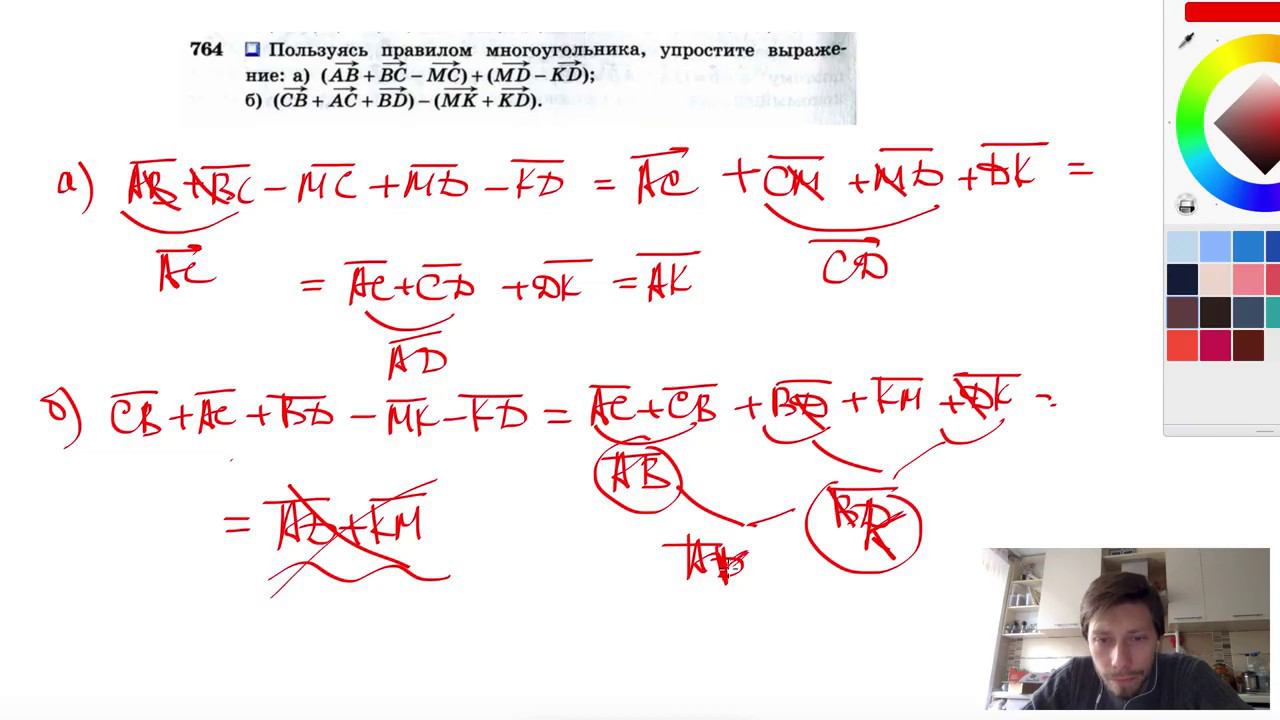 764 Пользуясь правилом многоугольника, упростите выраже-
ние: а) (AB + BC − MC) + (MD − KD);
б) (CB + AC + BD) − (MK + KD).
а) AB + BC − MC + MD − KD = AC + CM + MD + DK =
AC CD
= AC + CD + DK = AK
AD
б) CB + AC + BD − MK − KD = AC + CB + BD + KM + DK =
AB
= AD + KM